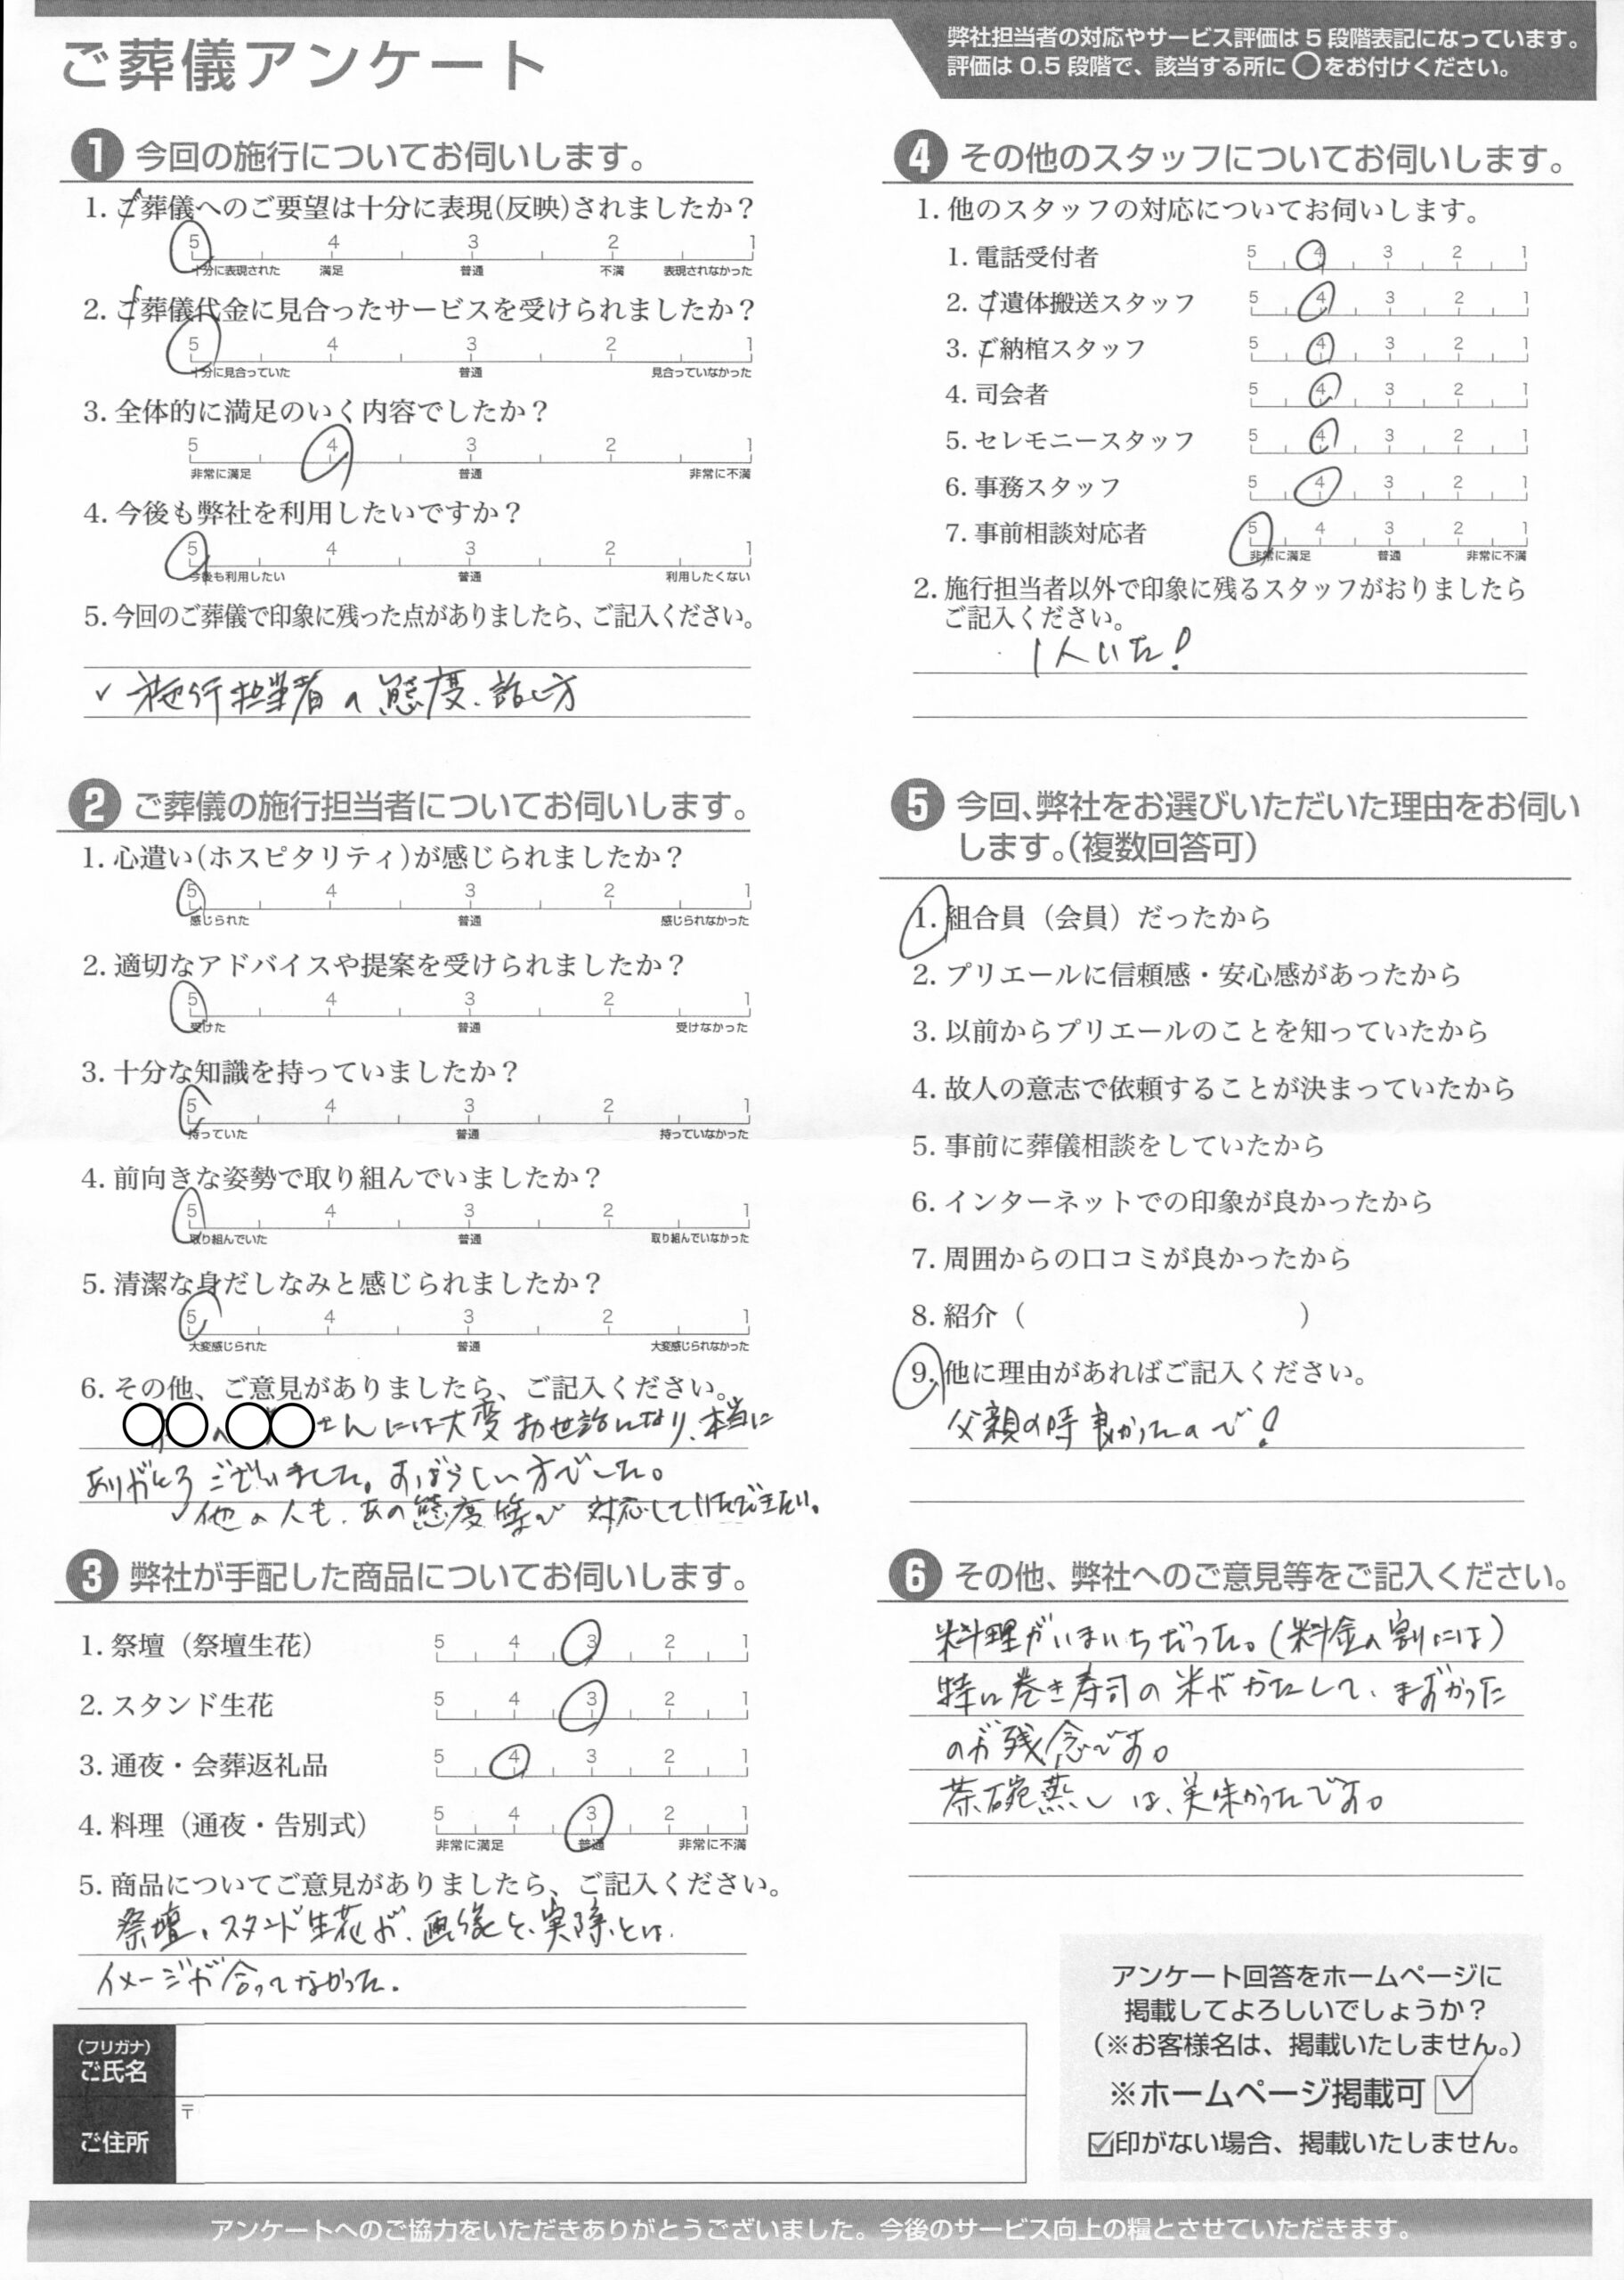 ご葬儀アンケート
弊社担当者の対応やサービス評価は5段階表記になっています。
評価は0.5段階で、該当する所に○をお付けください。
1 今回の施行についてお伺いします。
1. ご葬儀へのご要望は十分に表現(反映)されましたか？
5 4 3 2 1
十分に表現された 満足 普通 不満 表現されなかった
2. ご葬儀代金に見合ったサービスを受けられましたか？
5 4 3 2 1
十分に見合っていた 普通 見合っていなかった
3. 全体的に満足のいく内容でしたか？
5 4 3 2 1
非常に満足 普通 非常に不満
4. 今後も弊社を利用したいですか？
5 4 3 2 1
今後も利用したい 普通 利用したくない
5. 今回のご葬儀で印象に残った点がありましたら、ご記入ください。
✓施行担当者の態度、話し方
2 ご葬儀の施行担当者についてお伺いします。
1. 心遣い(ホスピタリティ)が感じられましたか？
5 4 3 2 1
感じられた 普通 感じられなかった
2. 適切なアドバイスや提案を受けられましたか？
5 4 3 2 1
受けた 普通 受けなかった
3. 十分な知識を持っていましたか？
5 4 3 2 1
持っていた 普通 持っていなかった
4. 前向きな姿勢で取り組んでいましたか？
5 4 3 2 1
取り組んでいた 普通 取り組んでいなかった
5. 清潔な身だしなみと感じられましたか？
5 4 3 2 1
大変感じられた 普通 大変感じられなかった
6. その他、ご意見がありましたら、ご記入ください。
○○の○○さんには大変お世話になり、本当に
ありがとうございました。すばらしい方でした。
✓他の人も、あの態度等で対応していただきたい。
3 弊社が手配した商品についてお伺いします。
1. 祭壇（祭壇生花） 5 4 3 2 1
2. スタンド生花 5 4 3 2 1
3. 通夜・会葬返礼品 5 4 3 2 1
4. 料理（通夜・告別式） 5 4 3 2 1
非常に満足 普通 非常に不満
5. 商品についてご意見がありましたら、ご記入ください。
祭壇、スタンド生花が、画像と、実際とは、
イメージが合ってなかった。
4 その他のスタッフについてお伺いします。
1. 他のスタッフの対応についてお伺いします。
1. 電話受付者 5 4 3 2 1
2. ご遺体搬送スタッフ 5 4 3 2 1
3. ご納棺スタッフ 5 4 3 2 1
4. 司会者 5 4 3 2 1
5. セレモニースタッフ 5 4 3 2 1
6. 事務スタッフ 5 4 3 2 1
7. 事前相談対応者 5 4 3 2 1
非常に満足 普通 非常に不満
2. 施行担当者以外で印象に残るスタッフがおりましたら
ご記入ください。
1人いた！
5 今回、弊社をお選びいただいた理由をお伺い
します。（複数回答可）
1. 組合員（会員）だったから
2. プリエールに信頼感・安心感があったから
3. 以前からプリエールのことを知っていたから
4. 故人の意志で依頼することが決まっていたから
5. 事前に葬儀相談をしていたから
6. インターネットでの印象が良かったから
7. 周囲からの口コミが良かったから
8. 紹介（ ）
9. 他に理由があればご記入ください。
父親の時良かったので！
6 その他、弊社へのご意見等をご記入ください。
料理がいまいちだった。（料金の割には）
特に巻き寿司の米がかたくて、まずかった
のが残念です。
茶碗蒸しは、美味かったです。
アンケート回答をホームページに
掲載してよろしいでしょうか？
（※お客様名は、掲載いたしません。）
※ホームページ掲載可 ☑
☑印がない場合、掲載いたしません。
（フリガナ）
ご氏名
ご住所
〒
アンケートへのご協力をいただきありがとうございました。今後のサービス向上の糧とさせていただきます。